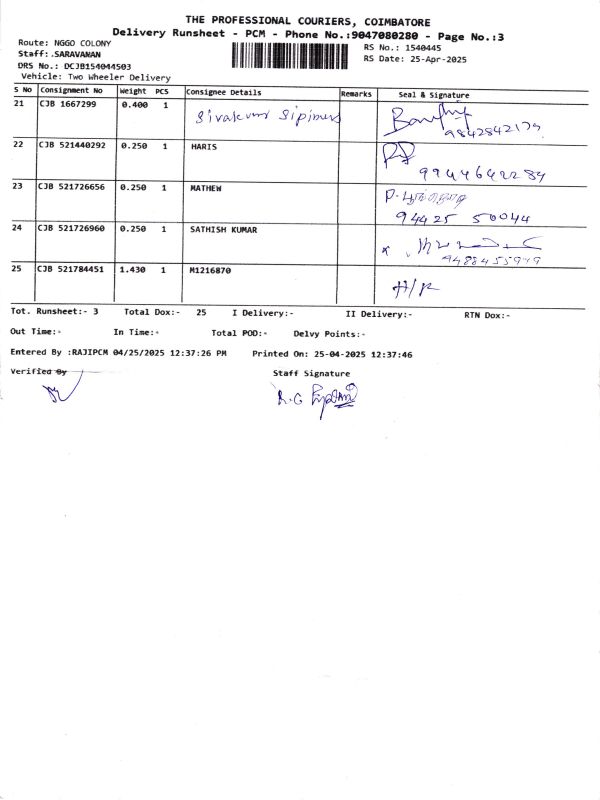 THE PROFESSIONAL COURIERS, COIMBATORE
Delivery Runsheet - PCM - Phone No.:9047080280 - Page No.:3
Route: NGGO COLONY
Staff:.SARAVANAN
DRS No.: DCJB154044503
Vehicle: Two Wheeler Delivery
RS No.: 1540445
RS Date: 25-Apr-2025
S No Consignment No Weight PCS Consignee Details Remarks Seal & Signature
21 CJB 1667299 0.400 1
22 CJB 521440292 0.250 1 HARIS
23 CJB 521726656 0.250 1 MATHEW
94425 50044
24 CJB 521726960 0.250 1 SATHISH KUMAR
9488455949
25 CJB 521784451 1.430 1 M1216870
H/R
Tot. Runsheet:- 3 Total Dox:- 25 I Delivery:- II Delivery:- RTN Dox:-
Out Time:- In Time:- Total POD:- Delvy Points:-
Entered By :RAJIPCM 04/25/2025 12:37:26 PM Printed On: 25-04-2025 12:37:46
Verified By Staff Signature